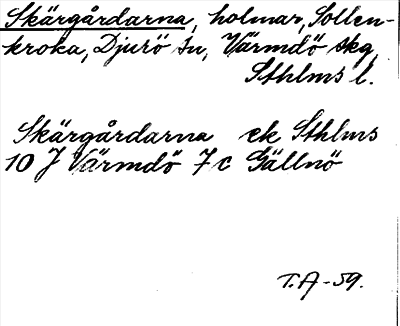 Skärgårdarna, holmar, Sollen-
kroka, Djurö sn, Värmdö skg
Sthlms l.
Skärgårdarna ek Sthlms
10 J Värmdö 7c Gällnö
T.A-59.